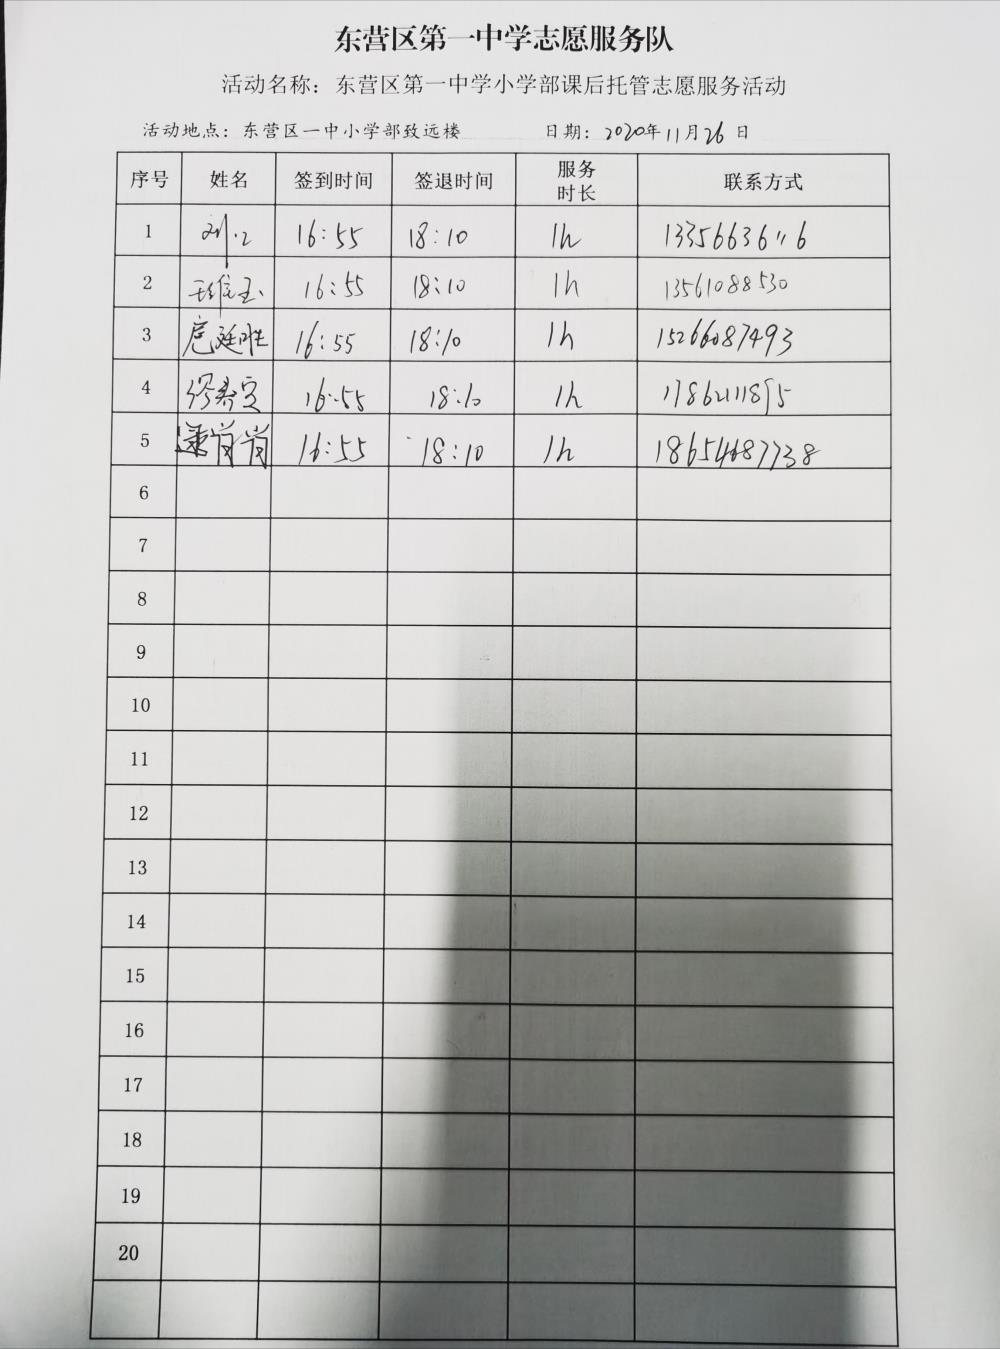 东营区第一中学志愿服务队
活动名称：东营区第一中学小学部课后托管志愿服务活动
活动地点：东营区一中小学部致远楼 日期：2020年11月26日
序号 姓名 签到时间 签退时间 服务时长 联系方式
1 16:55 18:10 1h
2 16:55 18:10 1h 13561088530
3 16:55 18:10 1h 15266087493
4 16:55 18:10 1h
5 肖肖 16:55 18:10 1h 18654687738
6
7
8
9
10
11
12
13
14
15
16
17
18
19
20